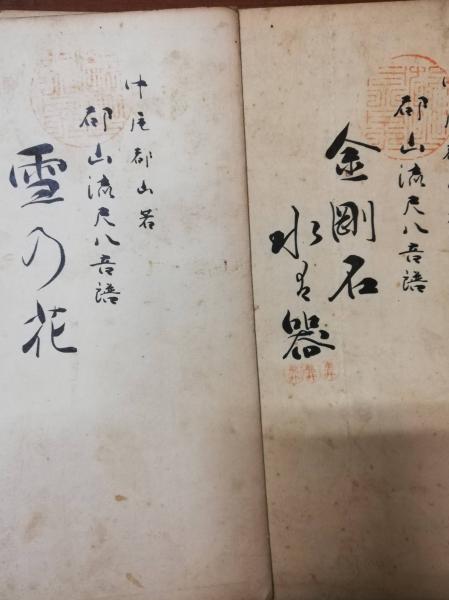 中尾都山著
都山流尺八音譜
雪の花
都山流尺八音譜
金剛石
水は器